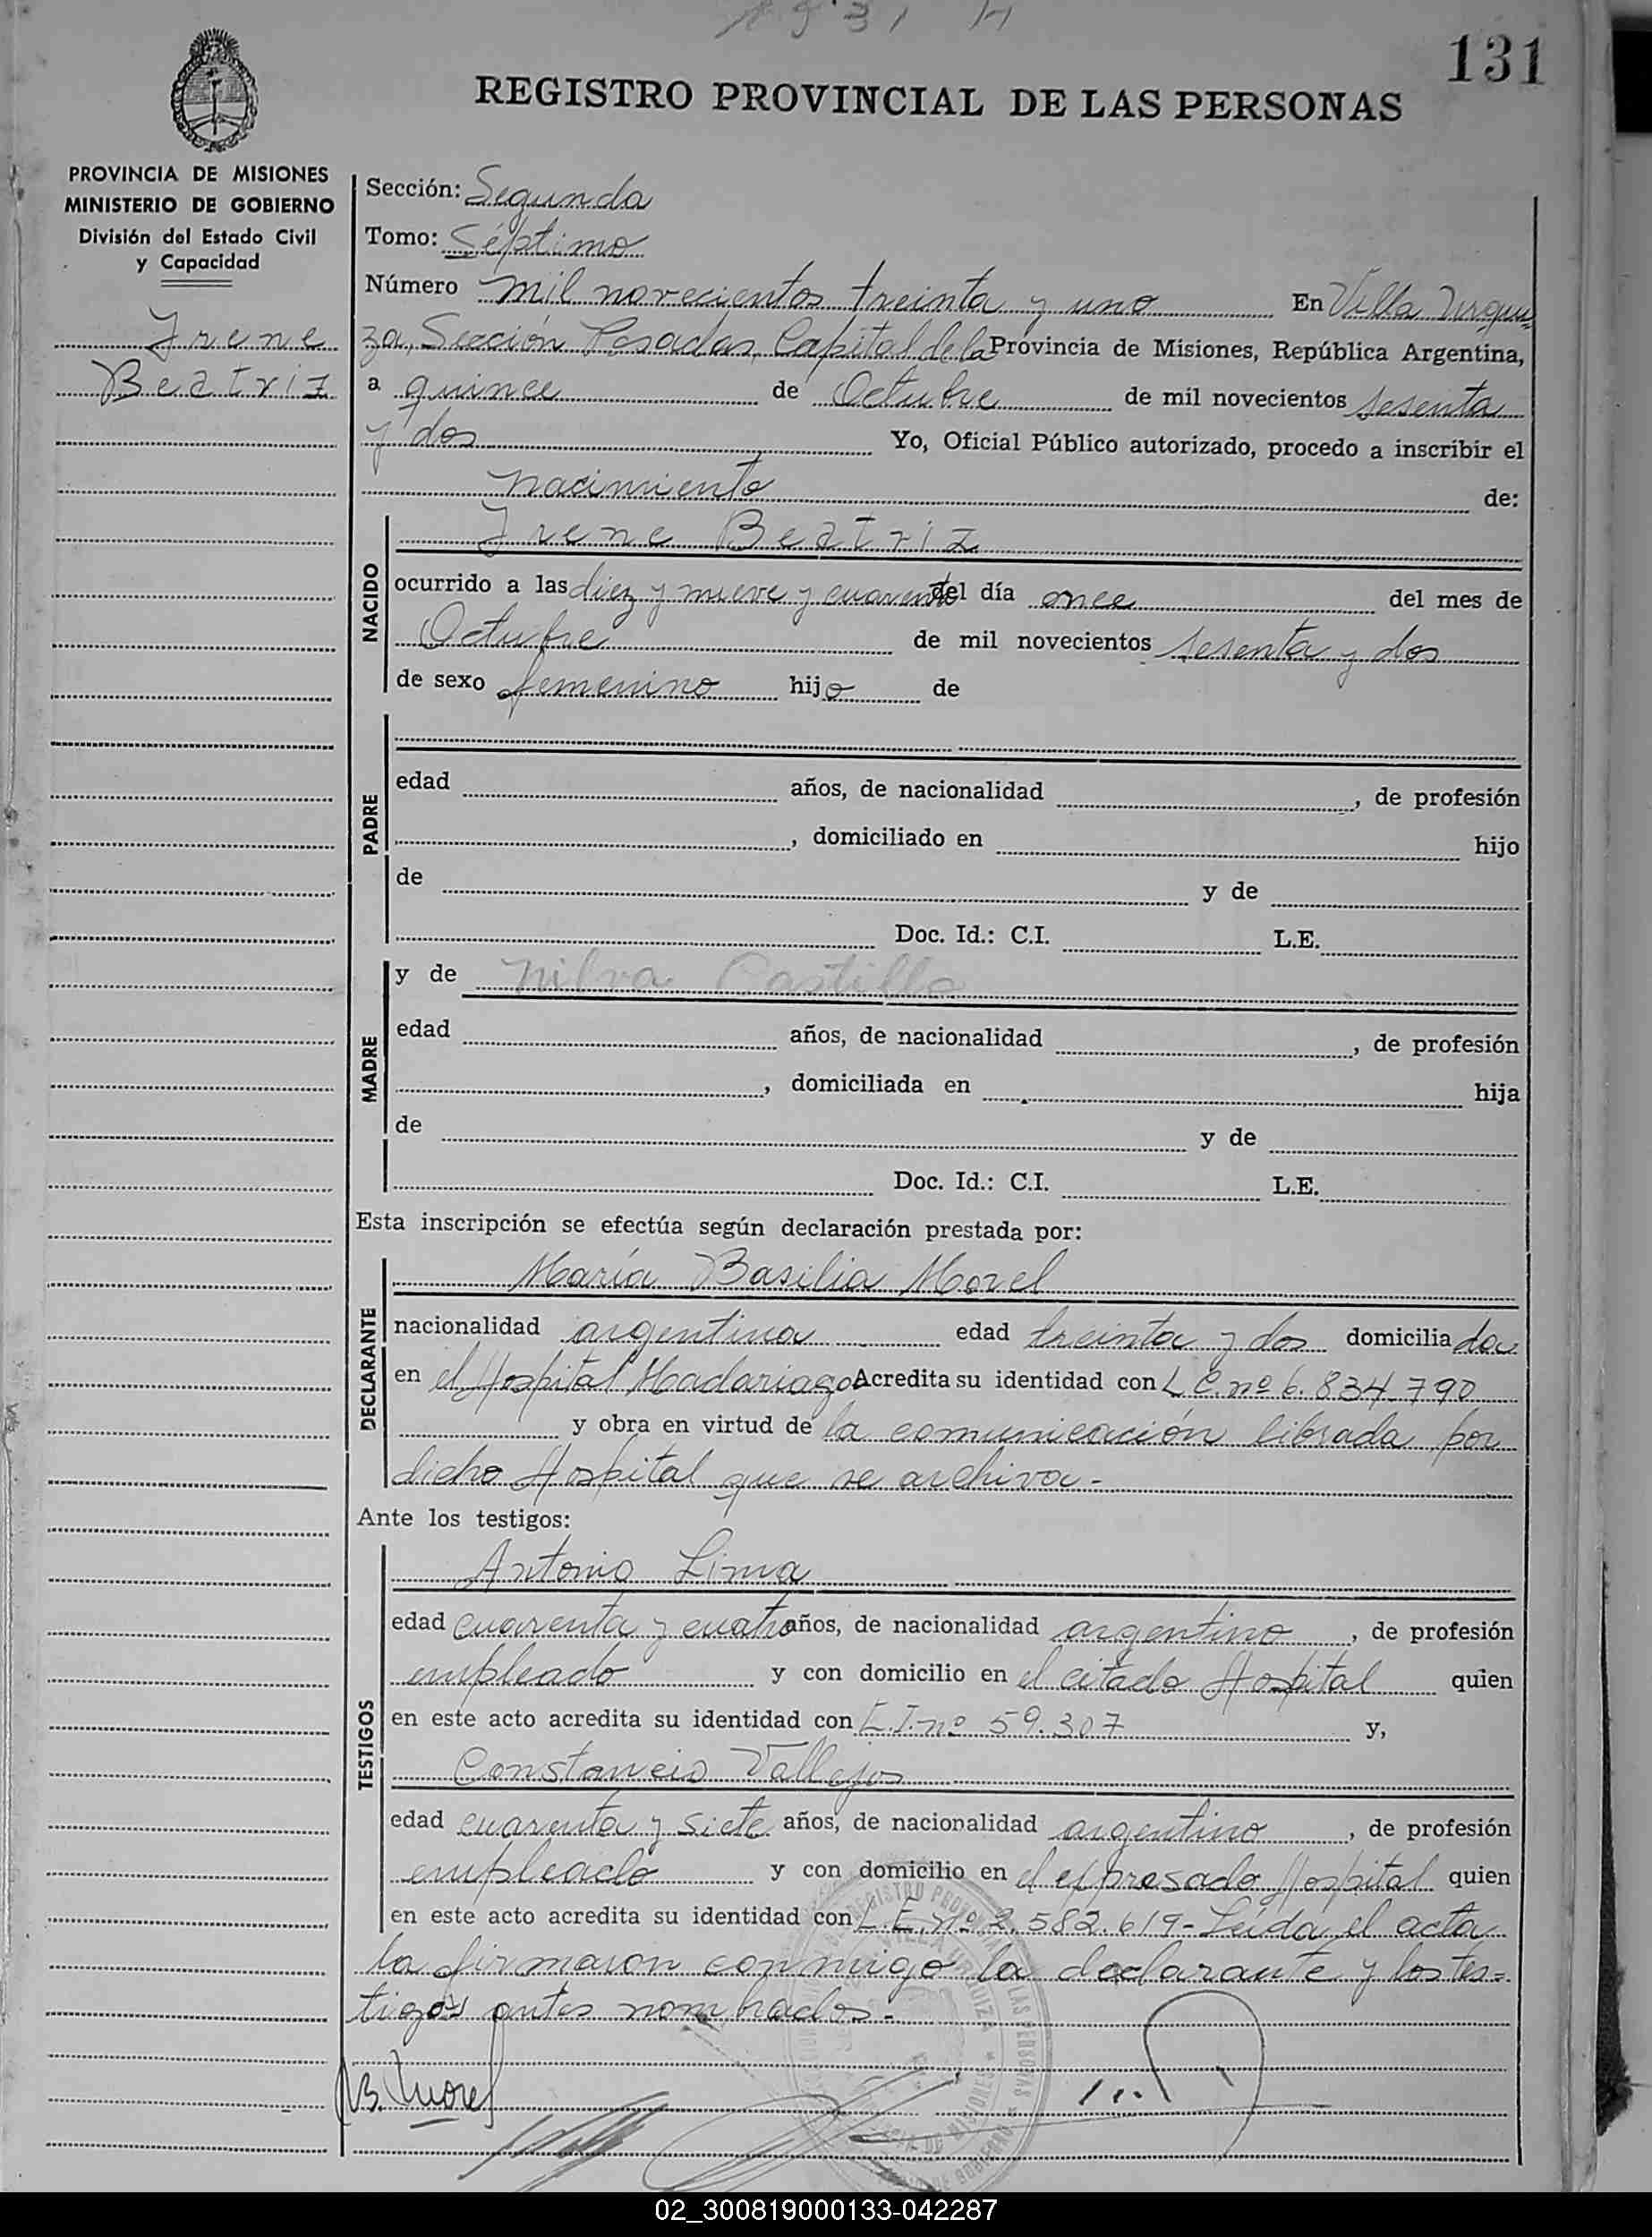 1931 H
131
REGISTRO PROVINCIAL DE LAS PERSONAS
PROVINCIA DE MISIONES
MINISTERIO DE GOBIERNO
División del Estado Civil
y Capacidad
Irene
Beatriz
Sección: Segunda
Tomo: Séptimo
Número mil novecientos treinta y uno En Villa Urqui-
za, Sección Posadas, Capital de la Provincia de Misiones, República Argentina,
a quince de Octubre de mil novecientos sesenta
y dos Yo, Oficial Público autorizado, procedo a inscribir el
nacimiento de:
NACIDO
Irene Beatriz
ocurrido a las diez y nueve y cuarenta del día once del mes de
Octubre de mil novecientos sesenta y dos
de sexo femenino hijo de
PADRE
edad años, de nacionalidad , de profesión
, domiciliado en hijo
de y de
Doc. Id.: C.I. L.E.
MADRE
y de Nilva Castillo
edad años, de nacionalidad , de profesión
, domiciliada en hija
de y de
Doc. Id.: C.I. L.E.
Esta inscripción se efectúa según declaración prestada por:
DECLARANTE
María Basilia Morel
nacionalidad argentina edad treinta y dos domiciliada
en el Hospital Madariaga Acredita su identidad con L C. nº 6.834.790
y obra en virtud de la comunicación librada por
dicho Hospital que se archiva.-
Ante los testigos:
TESTIGOS
Antonio Lima
edad cuarenta y cuatro años, de nacionalidad argentino, de profesión
empleado y con domicilio en el citado Hospital quien
en este acto acredita su identidad con C.I. nº 59.307 y,
Constancio Vallejos
edad cuarenta y siete años, de nacionalidad argentino, de profesión
empleado y con domicilio en el expresado Hospital quien
en este acto acredita su identidad con L.E. nº 2.582.619- Leída el acta
la firmaron conmigo la declarante y los tes=
tigos antes nombrados.-
B. Morel
02_300819000133-042287